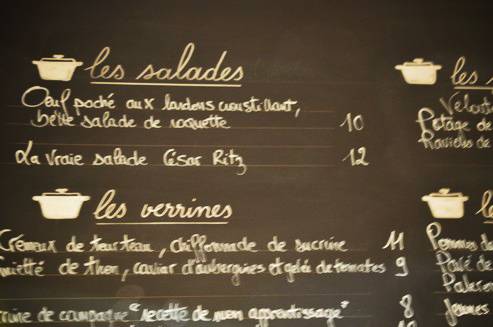 les salades
Oeuf poché aux lardons croustillant,
belle salade de roquette 10
La vraie salade César Ritz 12
les verrines
Crémeux de tourteau, chiffonnade de sucrine 11
de thon, caviar d'aubergines et gelée de tomates 9
de campagne "recette de mon apprentissage" 8
les
Velout
Potage de
Ravioles de
Pommes de
Pavé de